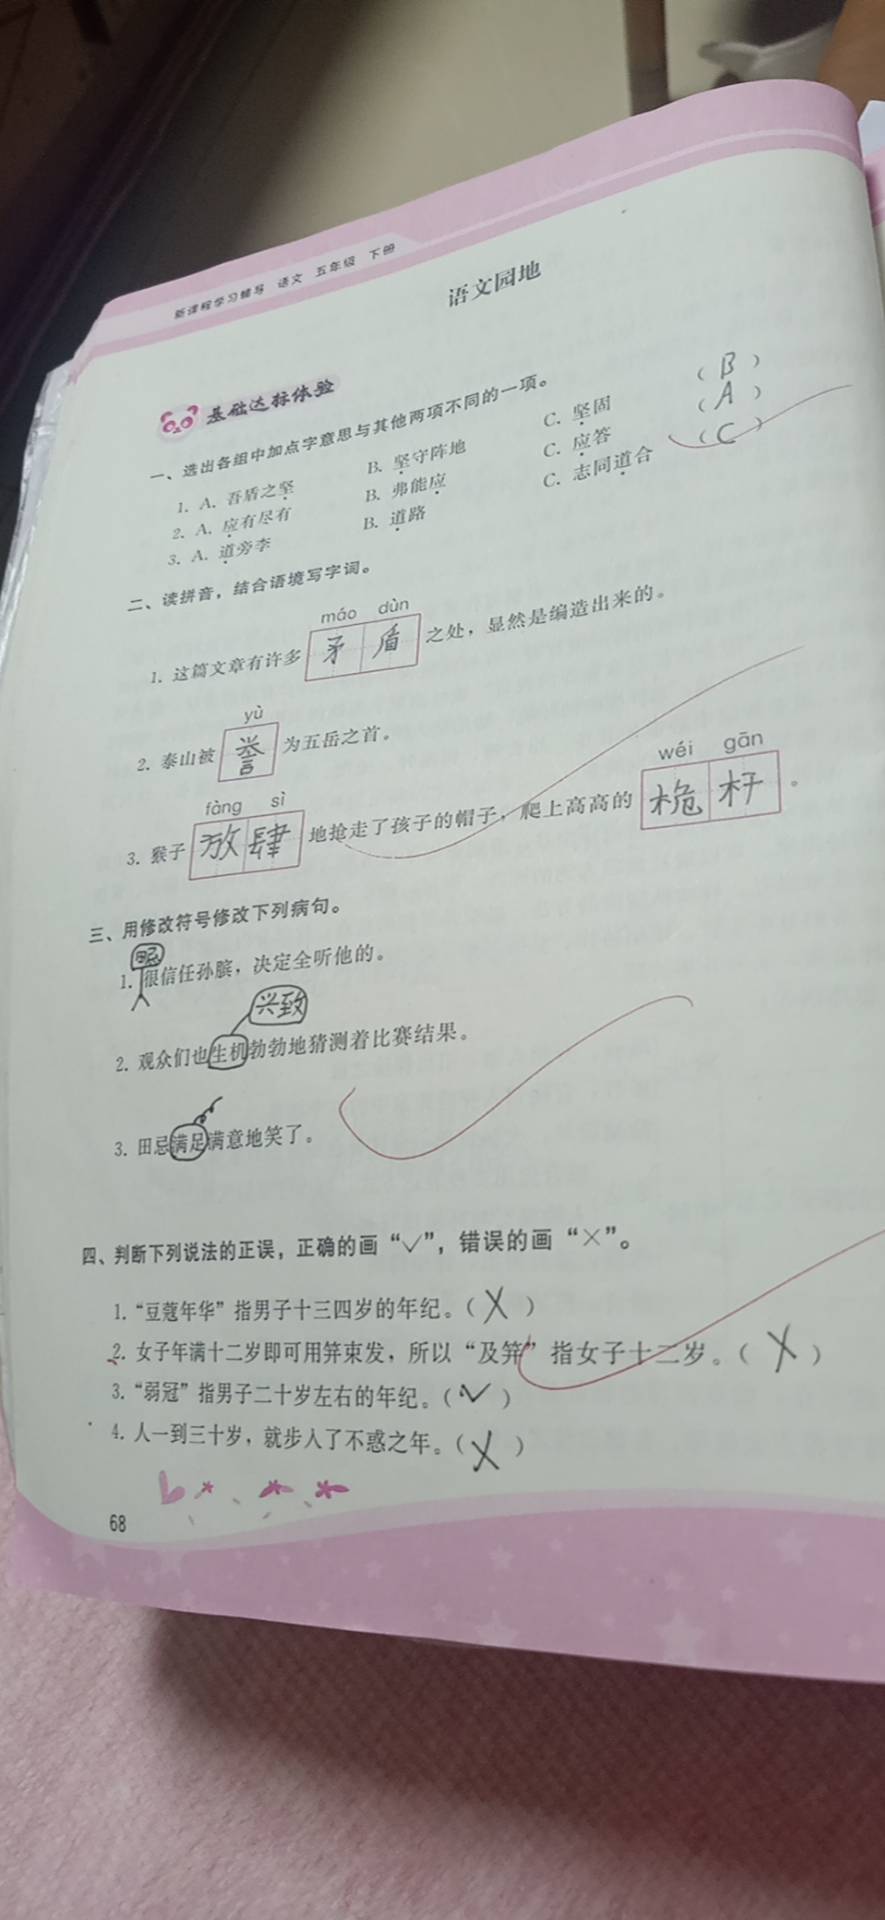 新课程学习辅导 语文 五年级 下册
语文园地
基础达标体验
一、选出各组中加点字意思与其他两项不同的一项。
1. A. 吾盾之坚 B. 坚守阵地 C. 坚固 （B）
2. A. 应有尽有 B. 弗能应 C. 应答 （A）
3. A. 道旁李 B. 道路 C. 志同道合 （C）
二、读拼音，结合语境写字词。
máo dùn
1. 这篇文章有许多矛盾之处，显然是编造出来的。
yù
2. 泰山被誉为五岳之首。
fàng sì wéi gān
3. 猴子放肆地抢走了孩子的帽子，爬上高高的桅杆。
三、用修改符号修改下列病句。
1. 很信任孙膑，决定全听他的。
兴致
2. 观众们也生机勃勃地猜测着比赛结果。
3. 田忌满足满意地笑了。
四、判断下列说法的正误，正确的画“✓”，错误的画“×”。
1. “豆蔻年华”指男子十三四岁的年纪。（×）
2. 女子年满十二岁即可用笄束发，所以“及笄”指女子十二岁。（×）
3. “弱冠”指男子二十岁左右的年纪。（✓）
4. 人一到三十岁，就步入了不惑之年。（×）
68